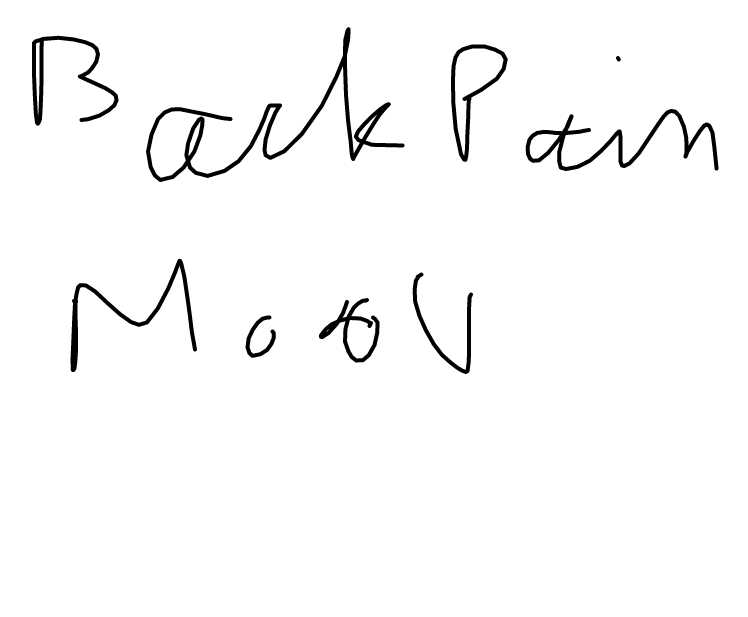 Back Pain
Moov